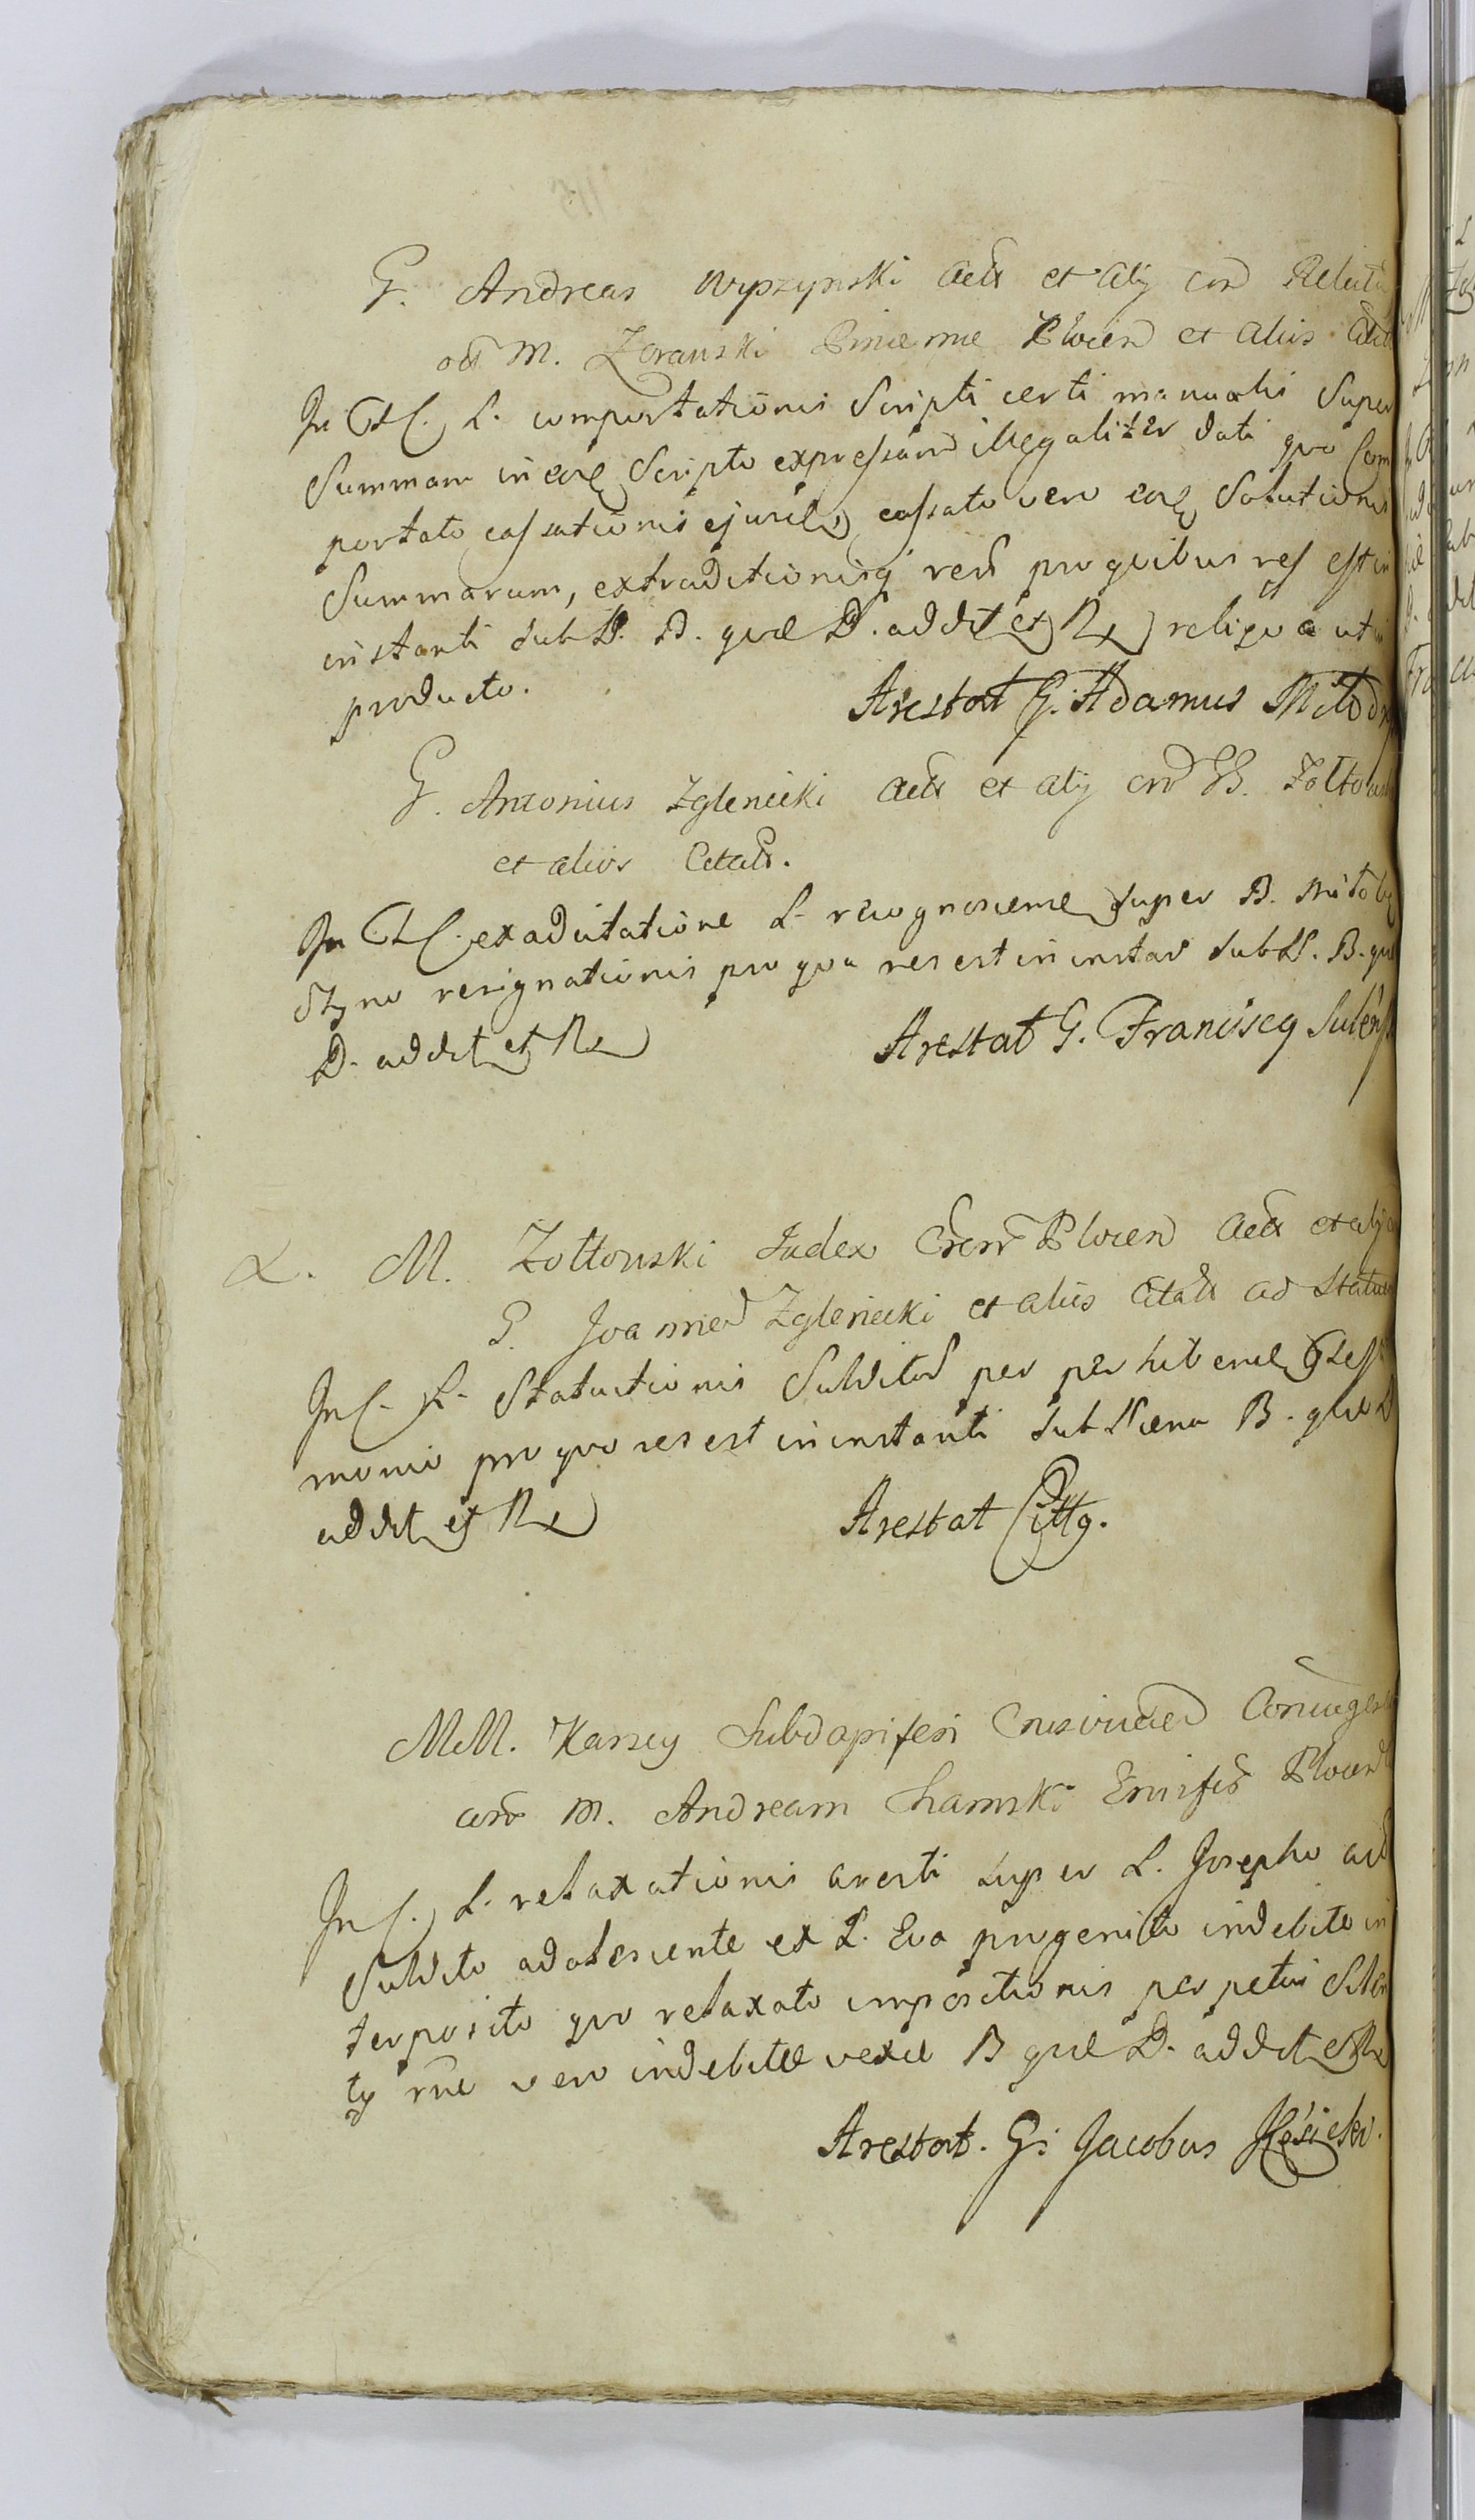 G. Andreas Wyszynski Actr et alij con Relictā
ad M. Zorawski Pincernæ Plocen et alios Citt
In Ct C. L. comportationis Scripti certi manualis Super
Summam in eod Scripto expressam illegaliter dati quo Com
portato cassationis ejusd cassato vero eod Solutionis
Summarum, extraditionisq rerū pro quibus res est in
instanti sub P. B. quæ D. addet et R reliqua ut in
producto.
Arestat G. Adamus Młod
G. Antonius Zglenicki Actr et alij con GG. Zołtowsk
et alios Citatt.
In Ct C. ex adcitatione L. recognoscenæ super B.
resignationis pro qua res est in instan sub P. B. quæ
D. addet et R
Arestat G. Franciscq
L. M. Zołtowski Judex Plocen Actr et alij
G. Joannem Zglenicki et alios Citatt ad Statuen
In C. L. Statuitionis Subditor per perhibenæ Testi
monio pro quo res est in instanti sub Pæna B. quæ D
addet et R
Arestat Cittq.
MM. Karscy Subdapiferi Coniuges
con M. Andream Chamski Ensifer Plocen
In C. L. relaxationis aresti super L. Josepho ad
Subdito adolescente ex L. Eva progenito indebite in
terposito quo relaxato impositionis perpetui Silen
ty rne vero indebitæ vexæ B quæ D. addet et R
Arestat. G. Jacobus